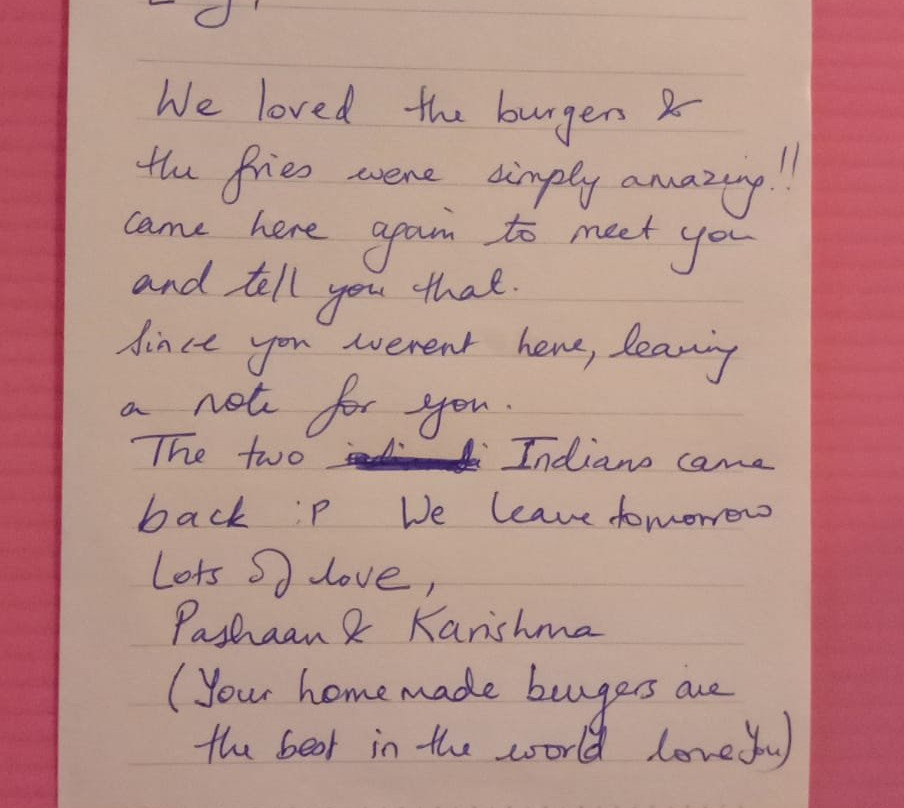 We loved the burgers &
the fries were simply amazing!!
came here again to meet you
and tell you that.
Since you werent here, leaving
a note for you.
The two Indians came
back :P We leave tomorrow
Lots of love,
Pashaan & Karishma
(Your homemade burgers are
the best in the world love you)